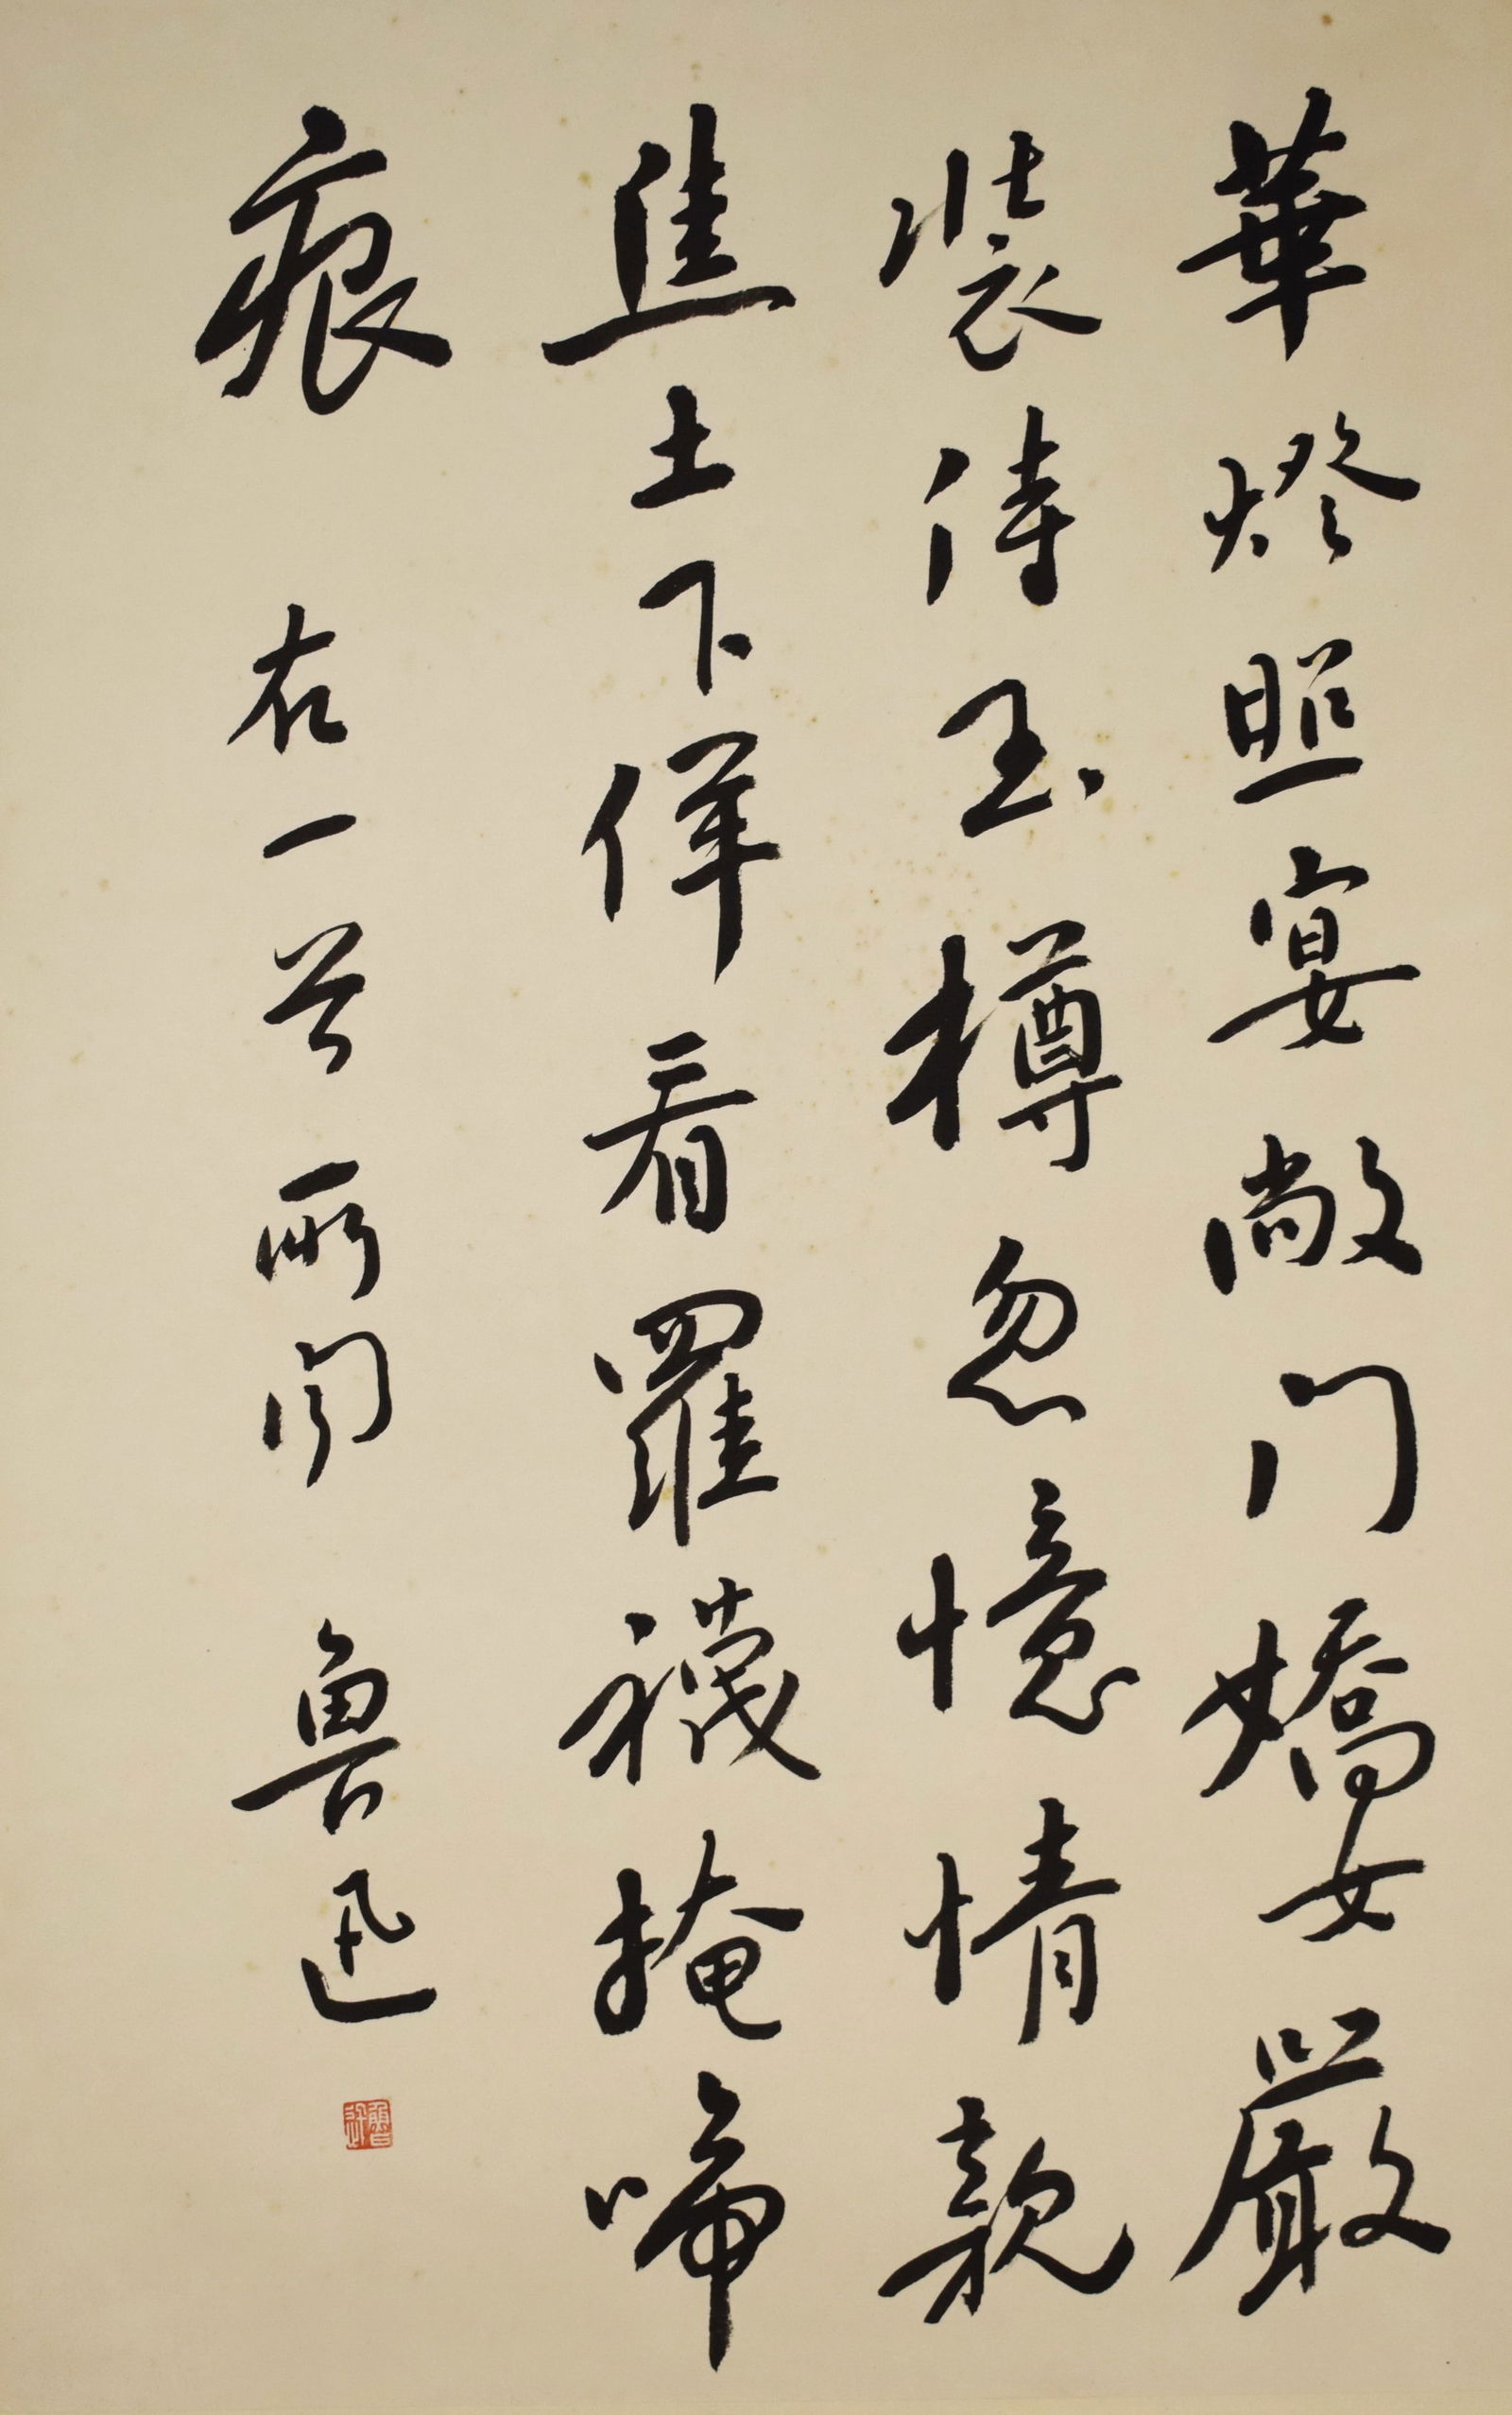 華燈照宴敞門嬌女嚴
裝侍玉樽忽憶情親
焦土下佯看羅襪掩啼
痕 右一首所聞 魯迅
魯迅